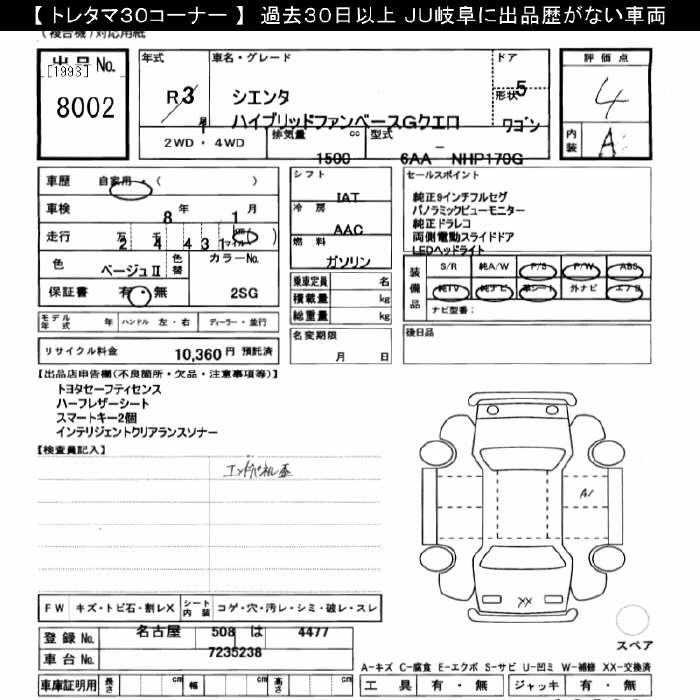 【トレタマ30コーナー】 過去30日以上 JU岐阜に出品歴がない車両
(複合機)対応用紙
出品No.
[1993]
8002
年式
R3
車名・グレード
シエンタ
ハイブリッドファンベースGクエロ
ドア
5
形状
ワゴン
評価点
4
内装
A
2WD ・ 4WD
排気量
cc
1500
型式
6AA - NHP170G
車歴
自家用・(
)
車検
8年
1月
走行
万
千
2 4 4 3 1
マイル
色
ベージュⅡ
色替
カラーNo.
2SG
保証書
有・無
モデル年式
年
ハンドル 左・右
ディーラー・並行
リサイクル料金
10,360円 預託済
シフト
IAT
冷房
AAC
燃料
ガソリン
乗車定員
名
積載量
kg
総重量
kg
名変期限
月 日
セールスポイント
純正9インチフルセグ
パノラミックビューモニター
純正ドラレコ
両側電動スライドドア
LEDヘッドライト
装備品
S/R 純A/W P/S P/W ABS
純TV 純ナビ 革シート 外ナビ エアB
ナビ型番:
後日品
【出品店申告欄(不良箇所・欠品・注意事項等)】
トヨタセーフティセンス
ハーフレザーシート
スマートキー2個
インテリジェントクリアランスソナー
【検査員記入】
エンドパネル歪
A1
XX
FW キズ・トビ石・割レX
シート内装
コゲ・穴・汚レ・シミ・破レ・スレ
登録No.
名古屋 508 は 4477
車台No.
7235238
スペア
A-キズ C-腐食 E-エクボ S-サビ U-凹ミ W-補修 XX-交換済
車庫証明用
長さ
cm
幅
cm
高さ
cm
工具
有・無
ジャッキ
有・無